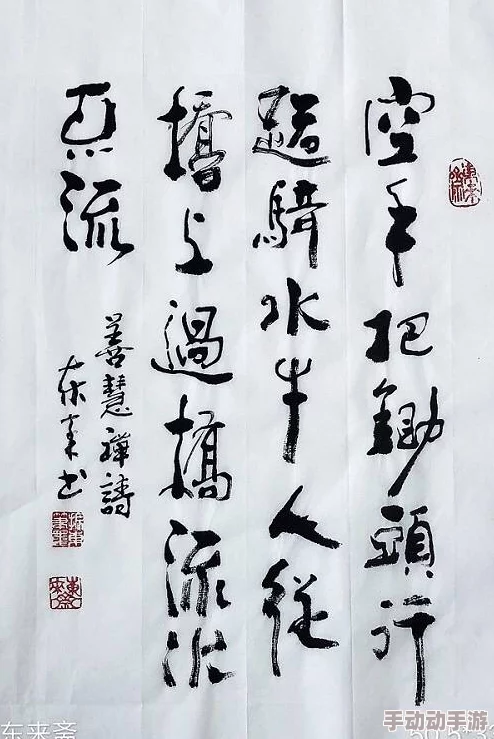 空手把鋤頭行
路騎水牛人從
橋上過橋流水
流
善慧禪詩
东来书
东来斋
手动动手游